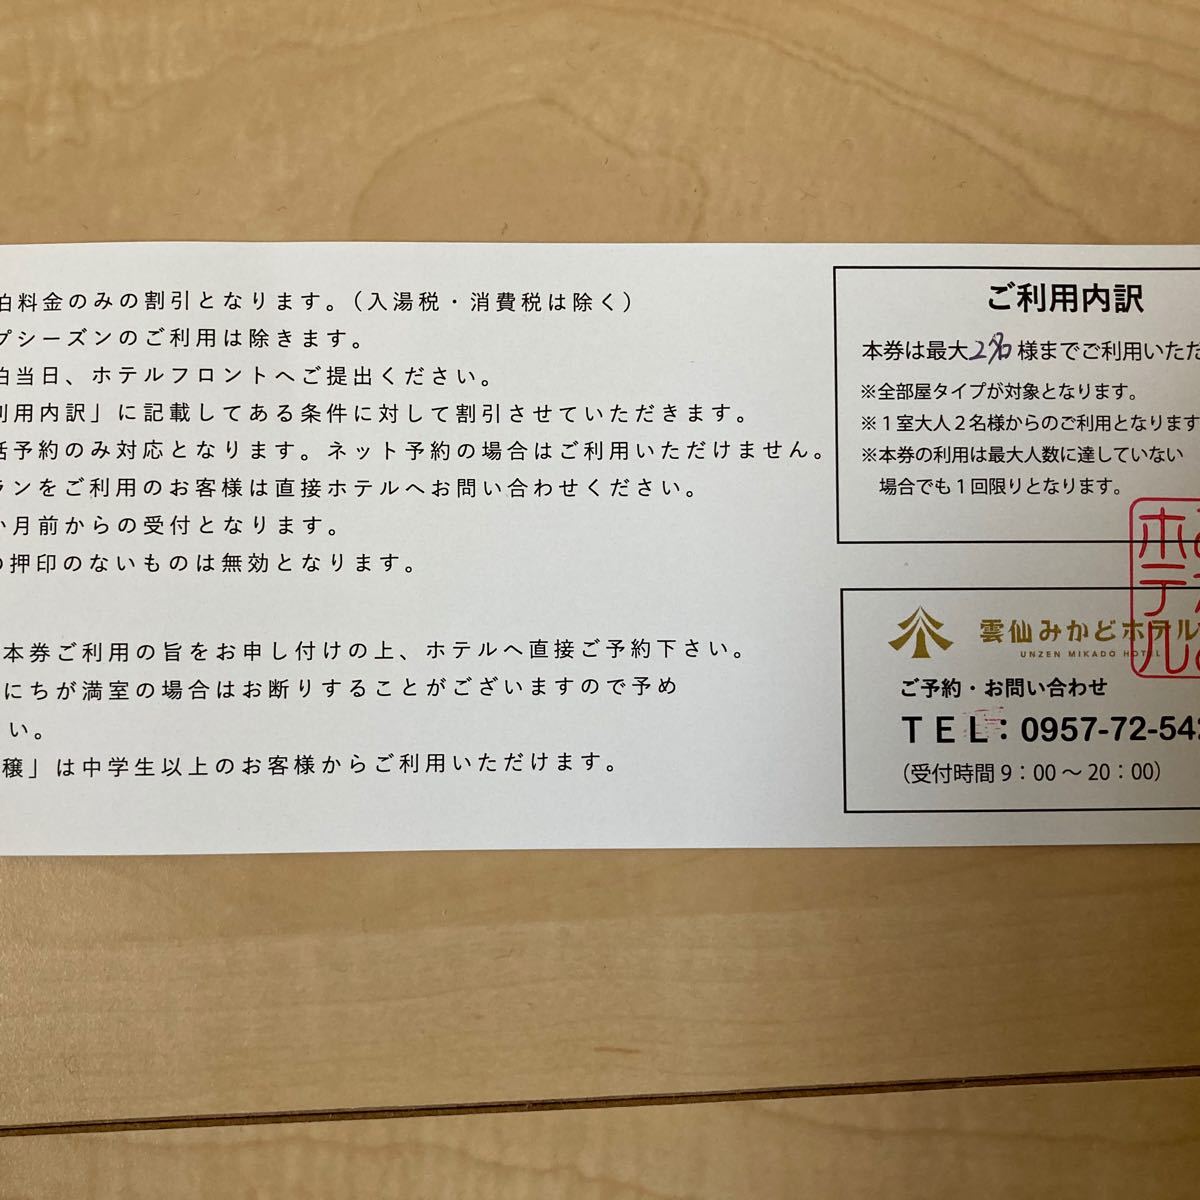 泊料金のみの割引となります。（入湯税・消費税は除く）
プシーズンのご利用は除きます。
泊当日、ホテルフロントへご提出ください。
利用内訳」に記載してある条件に対して割引させていただきます。
話予約のみ対応となります。ネット予約の場合はご利用いただけません。
ランをご利用のお客様は直接ホテルへお問い合わせください。
か月前からの受付となります。
の押印のないものは無効となります。
本券ご利用の旨をお申し付けの上、ホテルへ直接ご予約下さい。
にちが満室の場合はお断りすることがございますので予め
い。
穣」は中学生以上のお客様からご利用いただけます。
ご利用内訳
本券は最大2名様までご利用いただ
※全部屋タイプが対象となります。
※１室大人２名様からのご利用となります
※本券の利用は最大人数に達していない
場合でも１回限りとなります。
ホテル
雲仙みかどホテル
UNZEN MIKADO HOTEL
ご予約・お問い合わせ
ＴＥＬ：0957-72-54
（受付時間 9：00～20：00）